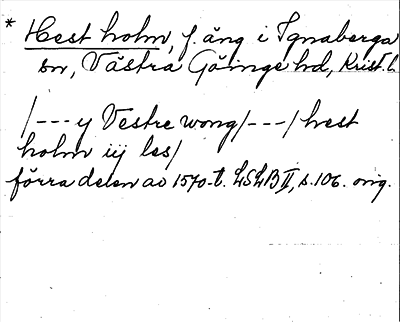 * Hest holm, f. äng i Ignaberga
sn, Västra Göinge hd, Krist. l.
/---y Vestre wong/---/hest
holm iij les/
förra delen av 1570-t. LSLB II, s. 106. orig.